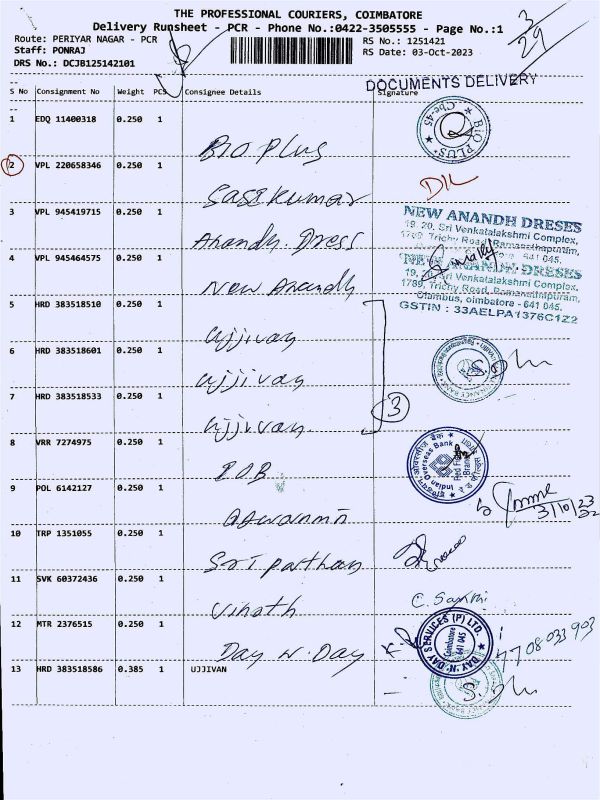 THE PROFESSIONAL COURIERS, COIMBATORE
Delivery Runsheet - PCR - Phone No.:0422-3505555 - Page No.:1
3/29
Route: PERIYAR NAGAR - PCR
RS No.: 1251421
Staff: PONRAJ
RS Date: 03-Oct-2023
DRS No.: DCJB125142101
DOCUMENTS DELIVERY
S No Consignment No Weight PCS Consignee Details Signature
1 EDQ 11400318 0.250 1 Bio Plus
Cbe-45
BIO PLUS
2 VPL 220658346 0.250 1 Sasikumar
3 VPL 945419715 0.250 1 Anandh. Dress
NEW ANANDH DRESES
19, 20, Sri Venkatalakshmi Complex,
1789, Trichy Road, Ramanathapuram,
641 045.
4 VPL 945464575 0.250 1 New Anandh
NEW ANANDH DRESES
19, 20, Sri Venkatalakshmi Complex,
1789, Trichy Road, Ramanathapuram,
Olambus, oimbatore - 641 045.
GSTIN : 33AELPA1376C1Z2
5 HRD 383518510 0.250 1 ujjivan
6 HRD 383518601 0.250 1 ujjivan
7 HRD 383518533 0.250 1 ujjivan
3
8 VRR 7274975 0.250 1 IOB
Indian Overseas Bank
9 POL 6142127 0.250 1
3/10/23
10 TRP 1351055 0.250 1 Sriparthan
11 SVK 60372436 0.250 1 Vinoth
12 MTR 2376515 0.250 1 Day N. Day
DAY N DAY SERVICES (P) LTD.
Coimbatore
641 045
7708033903
13 HRD 383518586 0.385 1 UJJIVAN